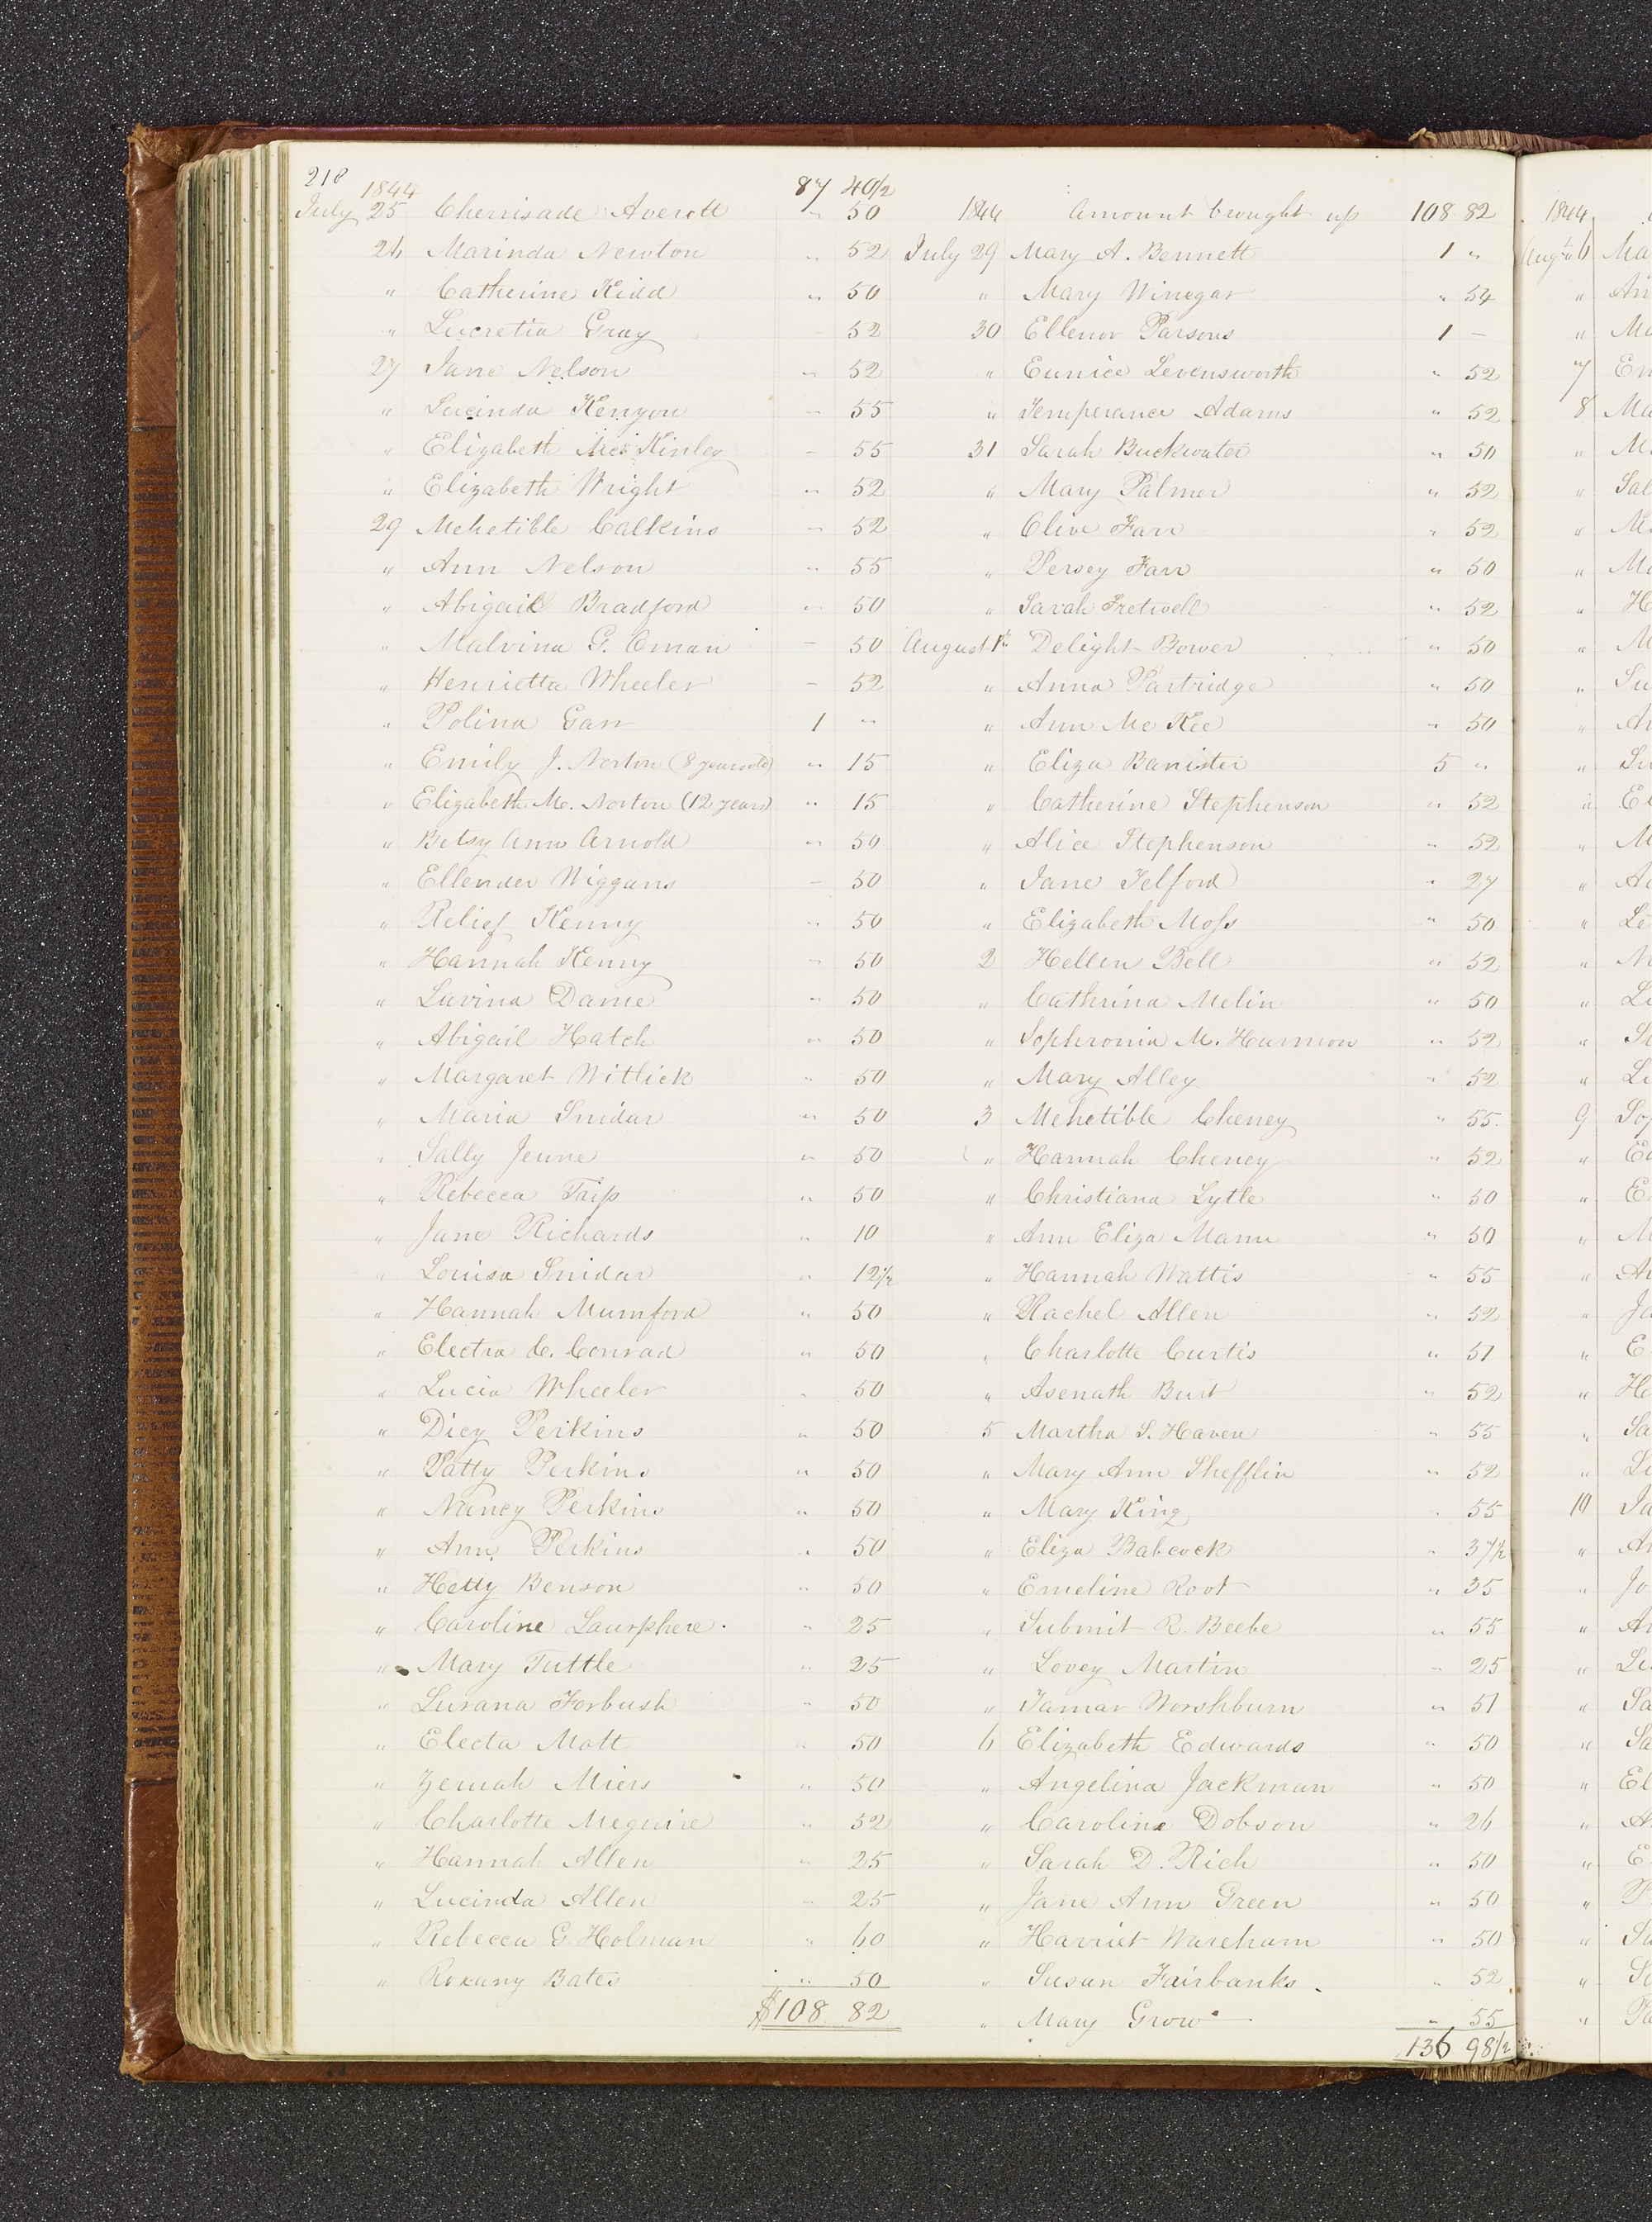 218
1844 87 40½
July 25 Cherrisade Averett " 50
26 Marinda Newton " 52
" Catherine Kidd " 50
" Lucretia Gray - 52
27 Jane Nelson " 52
" Lucinda Kenyon - 55
" Elizabeth McKinley - 55
" Elizabeth Wright " 52
29 Mehetible Calkins - 52
" Ann Nelson " 55
" Abigail Bradford " 50
" Malvina G. Oman - 50
" Henrietta Wheeler - 52
" Polina Gan 1 "
" Emily J. Norton (8 years old) " 15
" Elizabeth M. Norton (12 years) " 15
" Betsy Ann Arnold " 50
" Ellender Wiggans - 50
" Relief Kenny " 50
" Hannah Kenny " 50
" Lavina Dame " 50
" Abigail Hatch " 50
" Margaret Wittick " 50
" Maria Snidar " 50
" Sally Jenne " 50
" Rebecca Trip " 50
" Jane Richards " 10
" Louisa Snidar " 12½
" Hannah Mumford " 50
" Electra C. Conrad " 50
" Lucia Wheeler " 50
" Dicy Perkins " 50
" Patty Perkins " 50
" Nancy Perkins " 50
" Ann Perkins " 50
" Hetty Benson " 50
" Caroline Laurphere " 25
" Mary Tuttle " 25
" Lurana Forbush " 50
" Electa Mott " 50
" Zeruah Miers " 50
" Charlotte Meguire " 52
" Hannah Allen " 25
" Lucinda Allen " 25
" Rebecca G. Holman " 60
" Roxany Bates " 50
$108 82
1844 Amount brought up 108 82
July 29 Mary A. Bennett 1 "
" Mary Winegar " 54
30 Ellenor Parsons 1 -
" Eunice Levensworth " 52
" Temperance Adams " 52
31 Sarah Buckwater " 50
" Mary Palmer " 52
" Olive Farr " 52
" Persey Farr " 50
" Sarah Fretwell " 52
August 1st Delight Bower " 50
" Anna Partridge " 50
" Ann Mc Kee " 50
" Eliza Banister 5 "
" Catherine Stephenson " 52
" Alice Stephenson " 52
" Jane Telford " 27
" Elizabeth Moss " 50
2 Hellen Bell " 52
" Cathrina Melin " 50
" Sophronia M. Harmon " 52
" Mary Alley " 52
3 Mehetible Cheney " 55
" Hannah Cheney " 52
" Christiana Lytle " 50
" Ann Eliza Mann " 50
" Hannah Wattis " 55
" Rachel Allen " 52
" Charlotte Curtis " 51
" Asenath Burt " 52
5 Martha S. Haven " 55
" Mary Ann Shefflin " 52
" Mary King " 55
" Eliza Babcock " 37½
" Emeline Root " 35
" Submit R. Beebe " 55
" Lovey Martin " 25
" Tamar Worshburn " 51
6 Elizabeth Edwards " 50
" Angelina Jackman " 50
" Caroline Dobson " 26
" Sarah D. Rich " 50
" Jane Ann Green " 50
" Harriet Wareham " 50
" Susan Fairbanks " 52
" Mary Grow " 55
136 98½
1844
Aug 6 Ma
" An
" Ma
7 Em
8 Ma
" M
" Sal
" M
" Ma
" H
" M
" Su
" An
" Su
" El
" M
" Ad
" Le
" N
" Lu
" S
" Lu
9 Sop
" Ed
" E
" M
" An
" Ja
" E
" H
" Sa
" Lu
10 Ja
" An
" Jo
" An
" Lu
" Sa
" Sa
" El
" An
" E
" P
" Sa
" So
" Pa